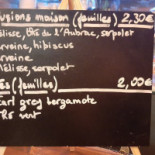 usions maison (feuilles) 2,30€
élisse, thé de l'Aubrac, serpolet
rveine, hibiscus
rveine
élisse, serpolet
és (feuilles) 2,00€
Earl grey bergamote
vert